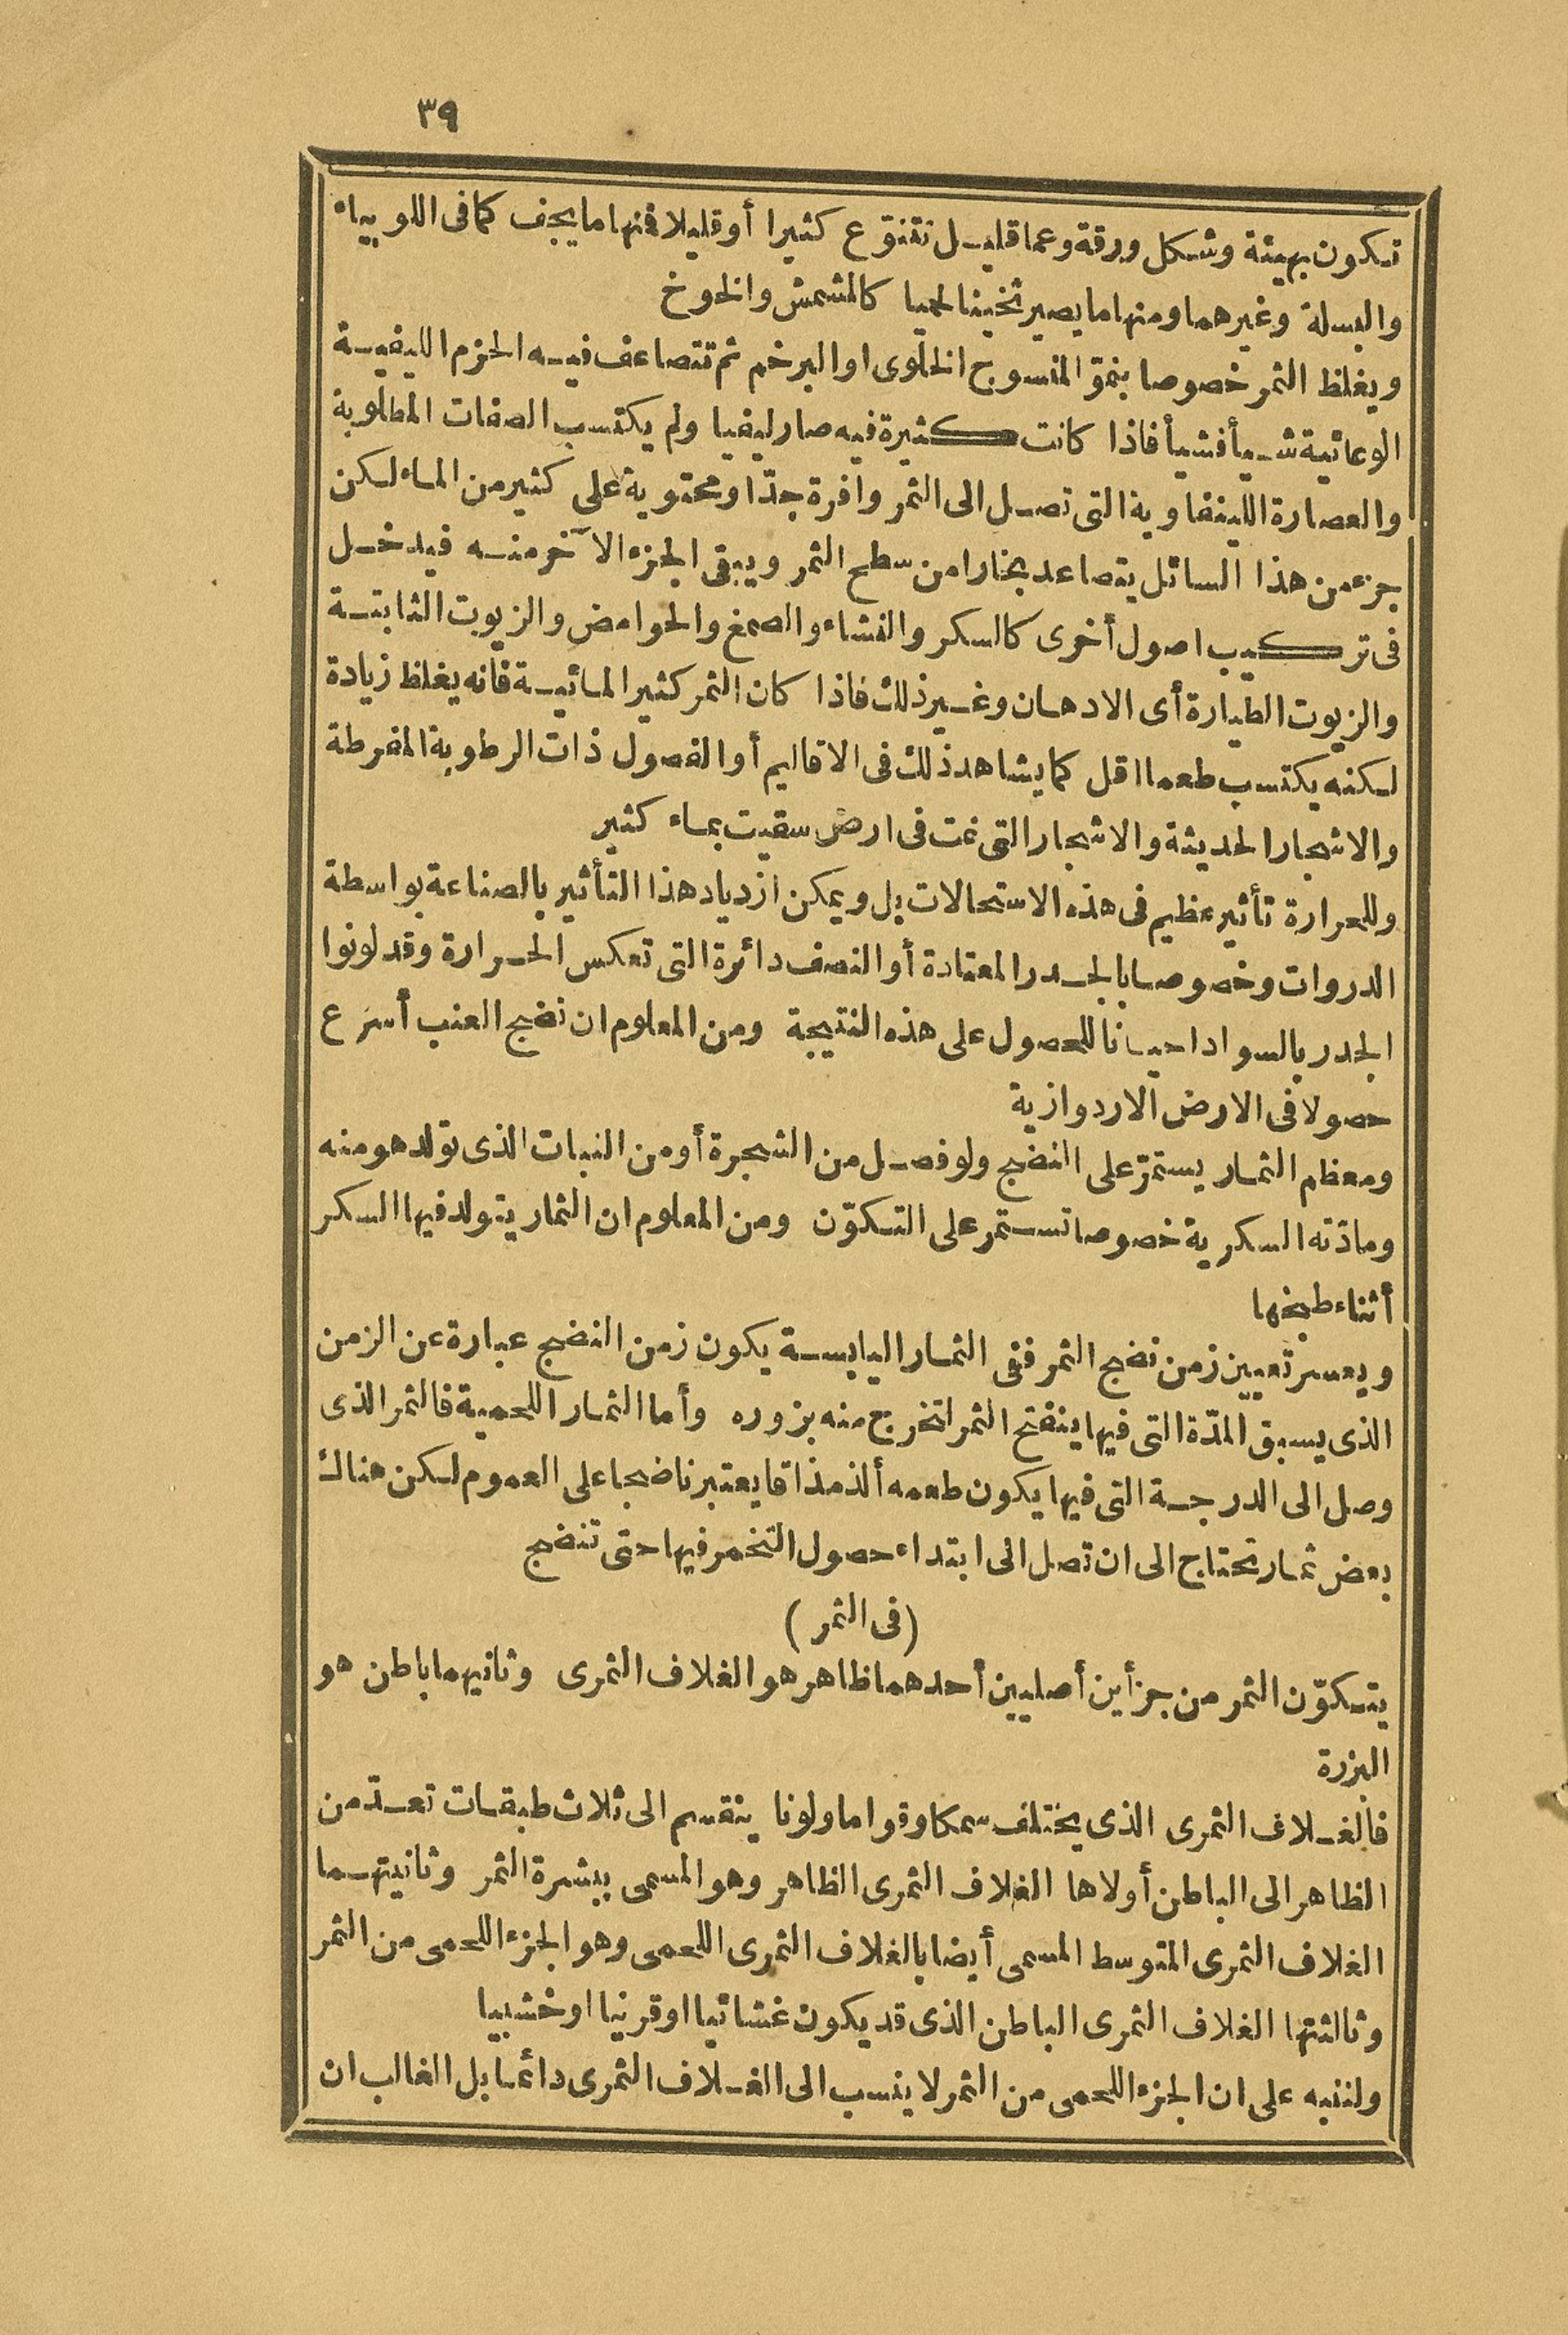 ٣٩
تكون بهيئة وشكل ورقة وعما قليل تتنوّع كثيرا أو قليلا فمنها ما يجف كما فى اللوبياء
والبسلة وغيرهما ومنها ما يصير ثخينا لحميا كالمشمش والخوخ
ويغلظ الثمر خصوصا بنموّ المنسوج الخلوى او البرخم ثم تتصاعف فيه الحزم الليفية
الوعائية شيأ فشيأ فاذا كانت كثيرة فيه صار ليفيا ولم يكتسب الصفات المطلوبة
والعصارة اللينفاوية التى تصل الى الثمر وافرة جدّا ومحتوية على كثير من الماء لكن
جزء من هذا السائل يتصاعد بخارا من سطح الثمر ويبقى الجزء الآخر منه فيدخل
فى تركيب اصول أخرى كالسكر والنشاء والصمغ والحوامض والزيوت الثابتة
والزيوت الطيارة أى الادهان وغير ذلك فاذا كان الثمر كثير المائية فانه يغلظ زيادة
لكنه يكتسب طعما اقل كما يشاهد ذلك فى الاقاليم أو الفصول ذات الرطوبة المفرطة
والاشجار الحديثة والاشجار التى نمت فى ارض سقيت بماء كثير
وللحرارة تأثير عظيم فى هذه الاستحالات بل ويمكن ازدياد هذا التأثير بالصناعة بواسطة
الدروات وخصوصا بالجدر المعتادة أو النصف دائرة التى تعكس الحرارة وقد لونوا
الجدر بالسواد احيانا للحصول على هذه النتيجة ومن المعلوم ان نضج العنب أسرع
حصولا فى الارض الاردوازية
ومعظم الثمار يستمرّ على النضج ولو فصل من الشجرة أو من النبات الذى تولد هو منه
ومادّته السكرية خصوصا تستمر على التكوّن ومن المعلوم ان الثمار يتولد فيها السكر
أثناء طبخها
ويعسر تعيين زمن نضج الثمر ففى الثمار اليابسة يكون زمن النضج عبارة عن الزمن
الذى يسبق المدّة التى فيها ينفتح الثمر لتخرج منه بزوره وأما الثمار اللحمية فالثمر الذى
وصل الى الدرجة التى فيها يكون طعمه ألذ مذاقا يعتبر ناضجا على العموم لكن هناك
بعض ثمار تحتاج الى ان تصل الى ابتداء حصول التخمر فيها حتى تنضج
(فى الثمر)
يتكوّن الثمر من جزأين أصليين أحدهما ظاهر هو الغلاف الثمرى وثانيهما باطن هو
البزرة
فالغلاف الثمرى الذى يختلف سمكا وقواما ولونا ينقسم الى ثلاث طبقات تعدّ من
الظاهر الى الباطن أولاها الغلاف الثمرى الظاهر وهو المسمى ببشرة الثمر وثانيتهما
الغلاف الثمرى المتوسط المسمى أيضا بالغلاف الثمرى اللحمى وهو الجزء اللحمى من الثمر
وثالثتها الغلاف الثمرى الباطن الذى قد يكون غشائيا او قرنيا او خشبيا
ولننبه على ان الجزء اللحمى من الثمر لا ينسب الى الغلاف الثمرى دائما بل الغالب ان